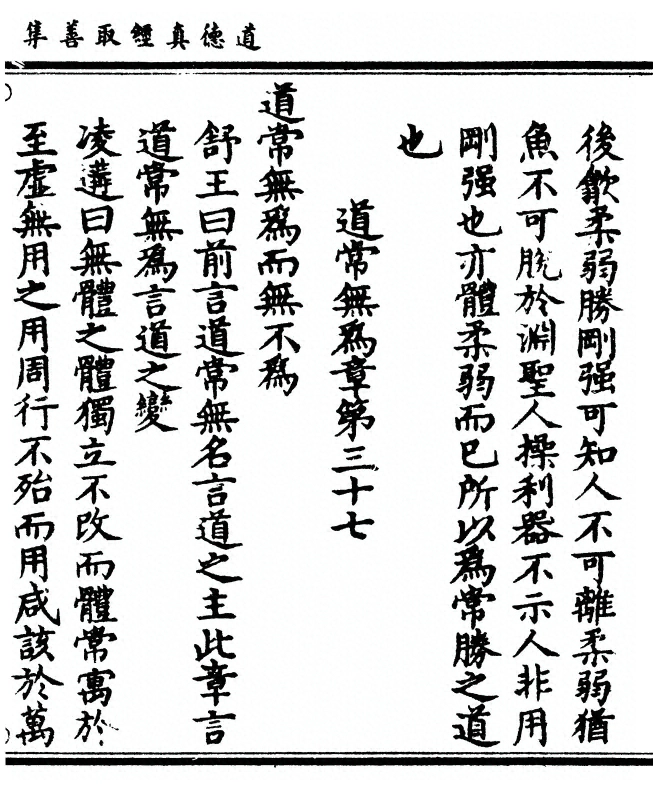 道德真經取善集
後歙柔弱勝剛强可知人不可離柔弱猶
魚不可脫於淵聖人操利器不示人非用
剛强也亦體柔弱而已所以爲常勝之道
也
道常無爲章第三十七
道常無爲而無不爲
舒王曰前言道常無名言道之主此章言
道常無爲言道之變
凌遘曰無體之體獨立不改而體常寓於
至虛無用之用周行不殆而用咸該於萬